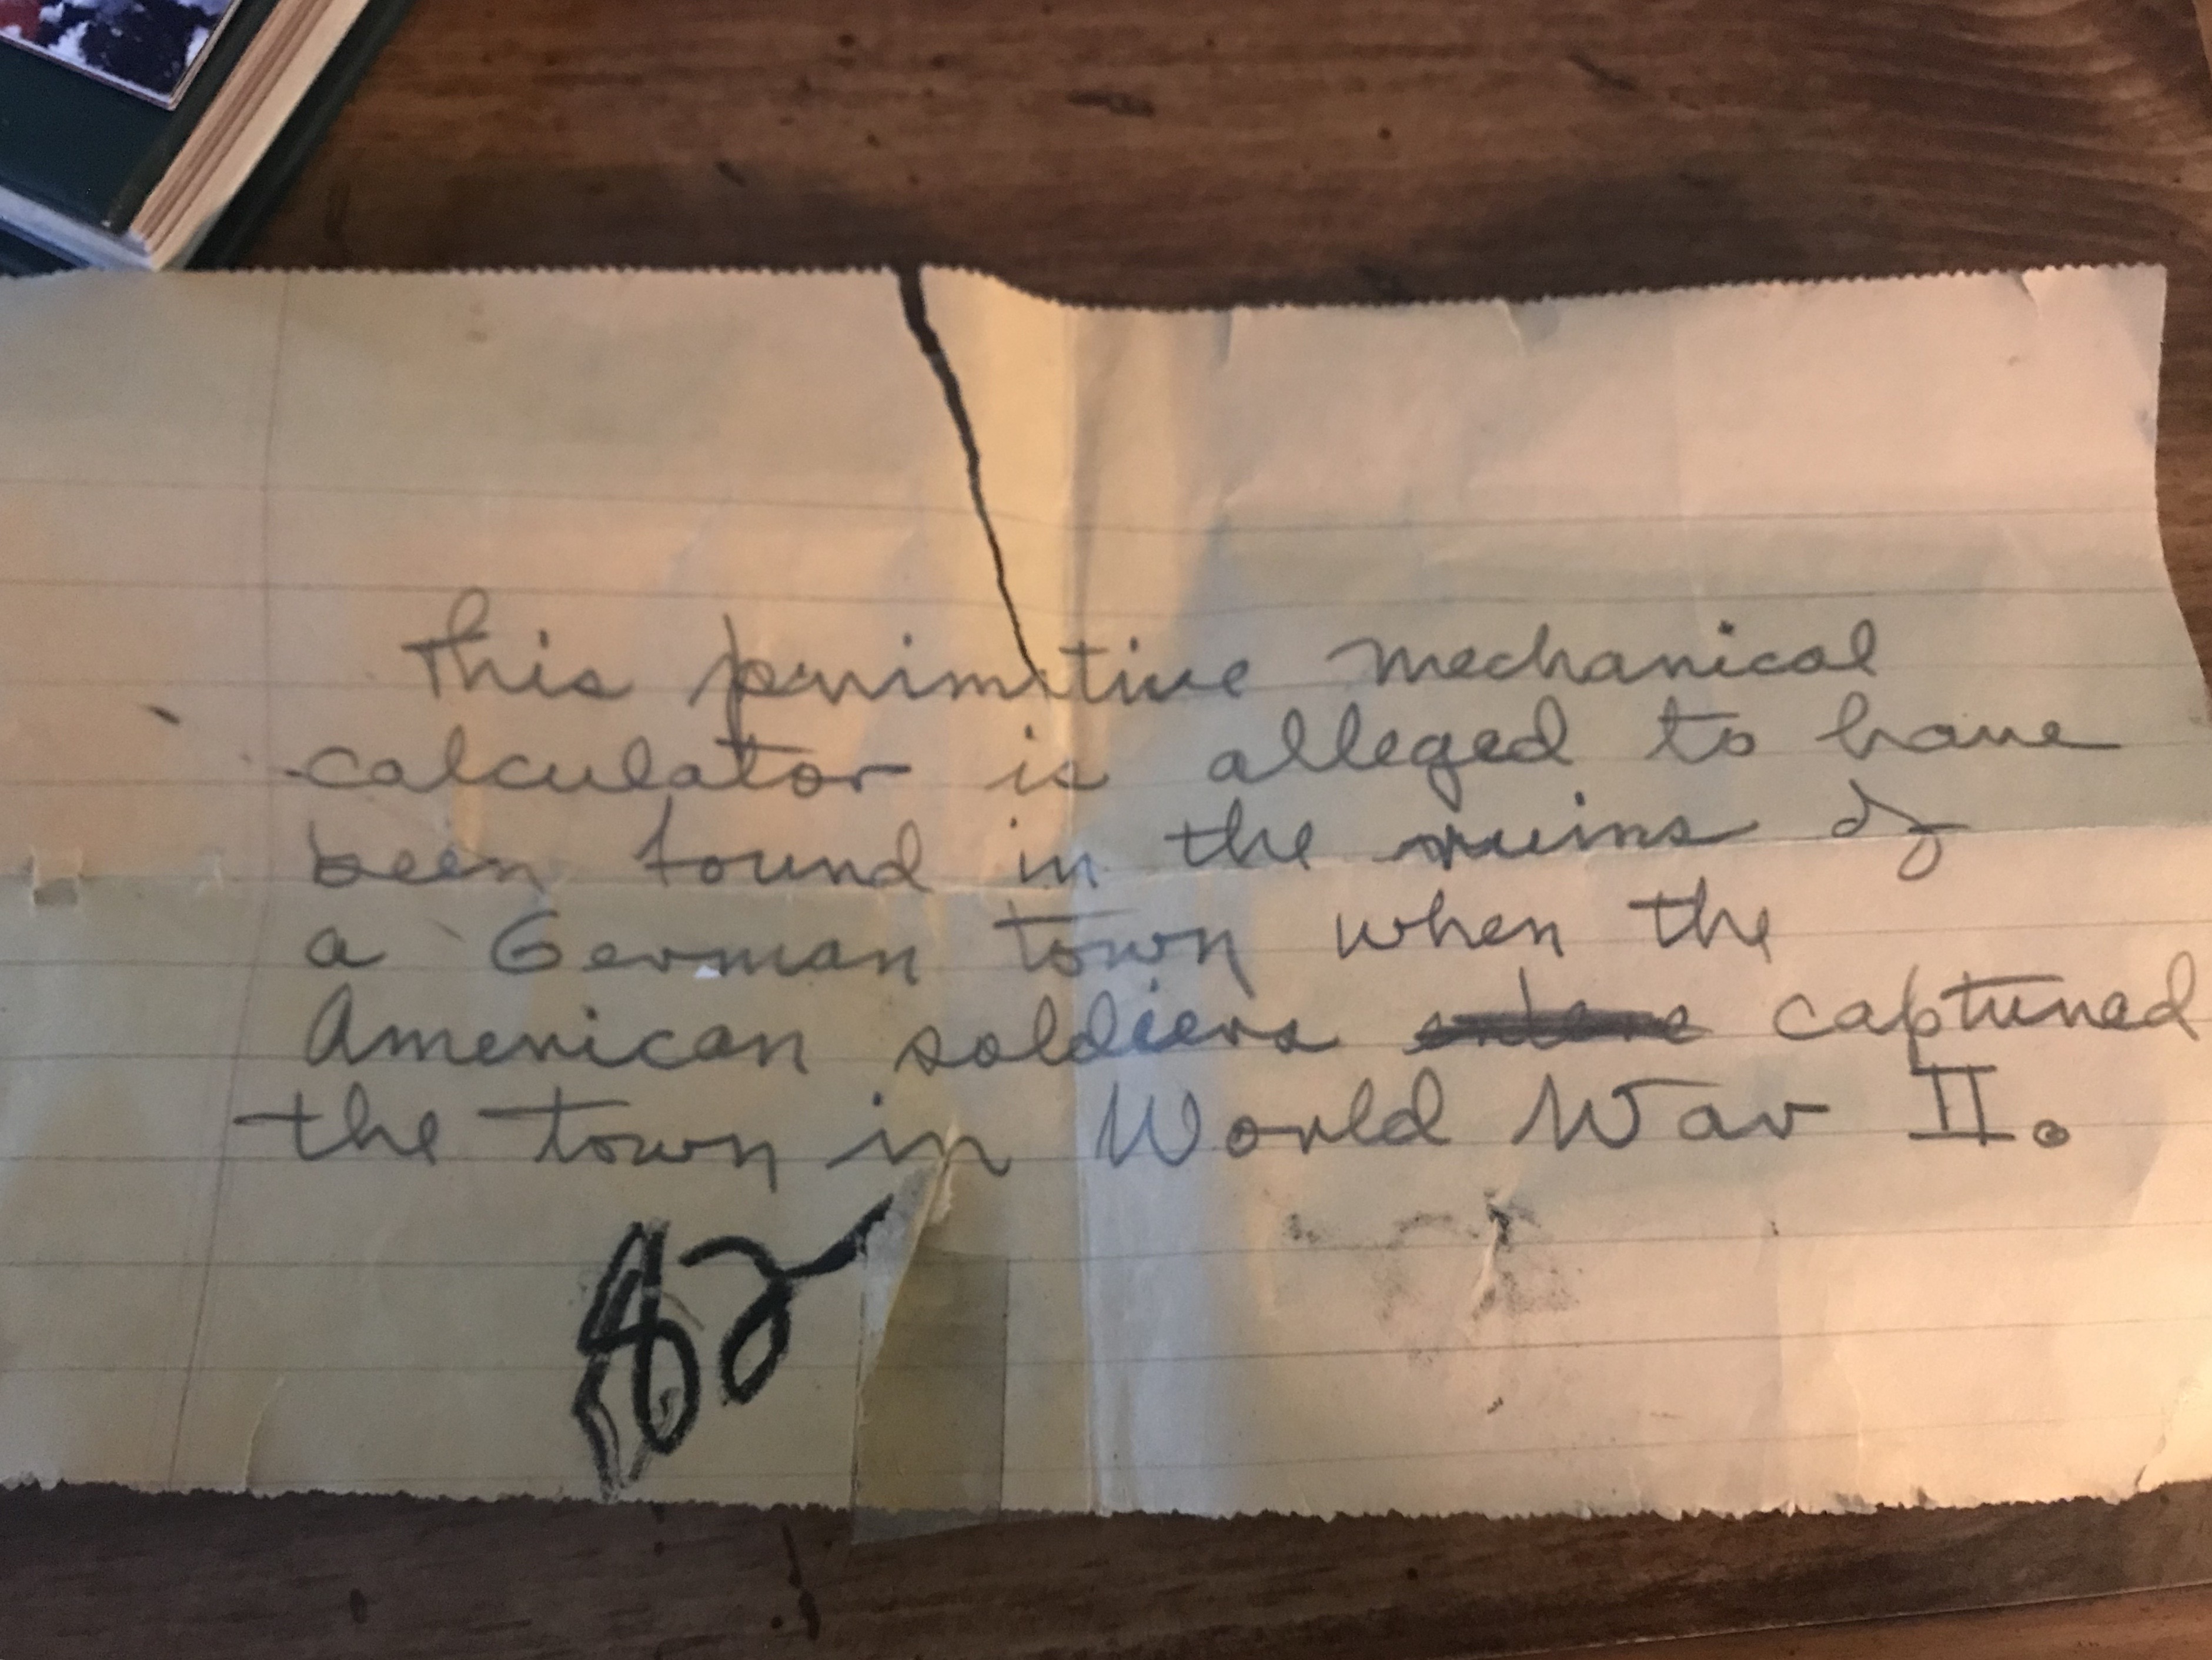 This primitive mechanical
calculator is alleged to have
been found in the ruins of
a German town when the
American soldiers captured
the town in World War II.